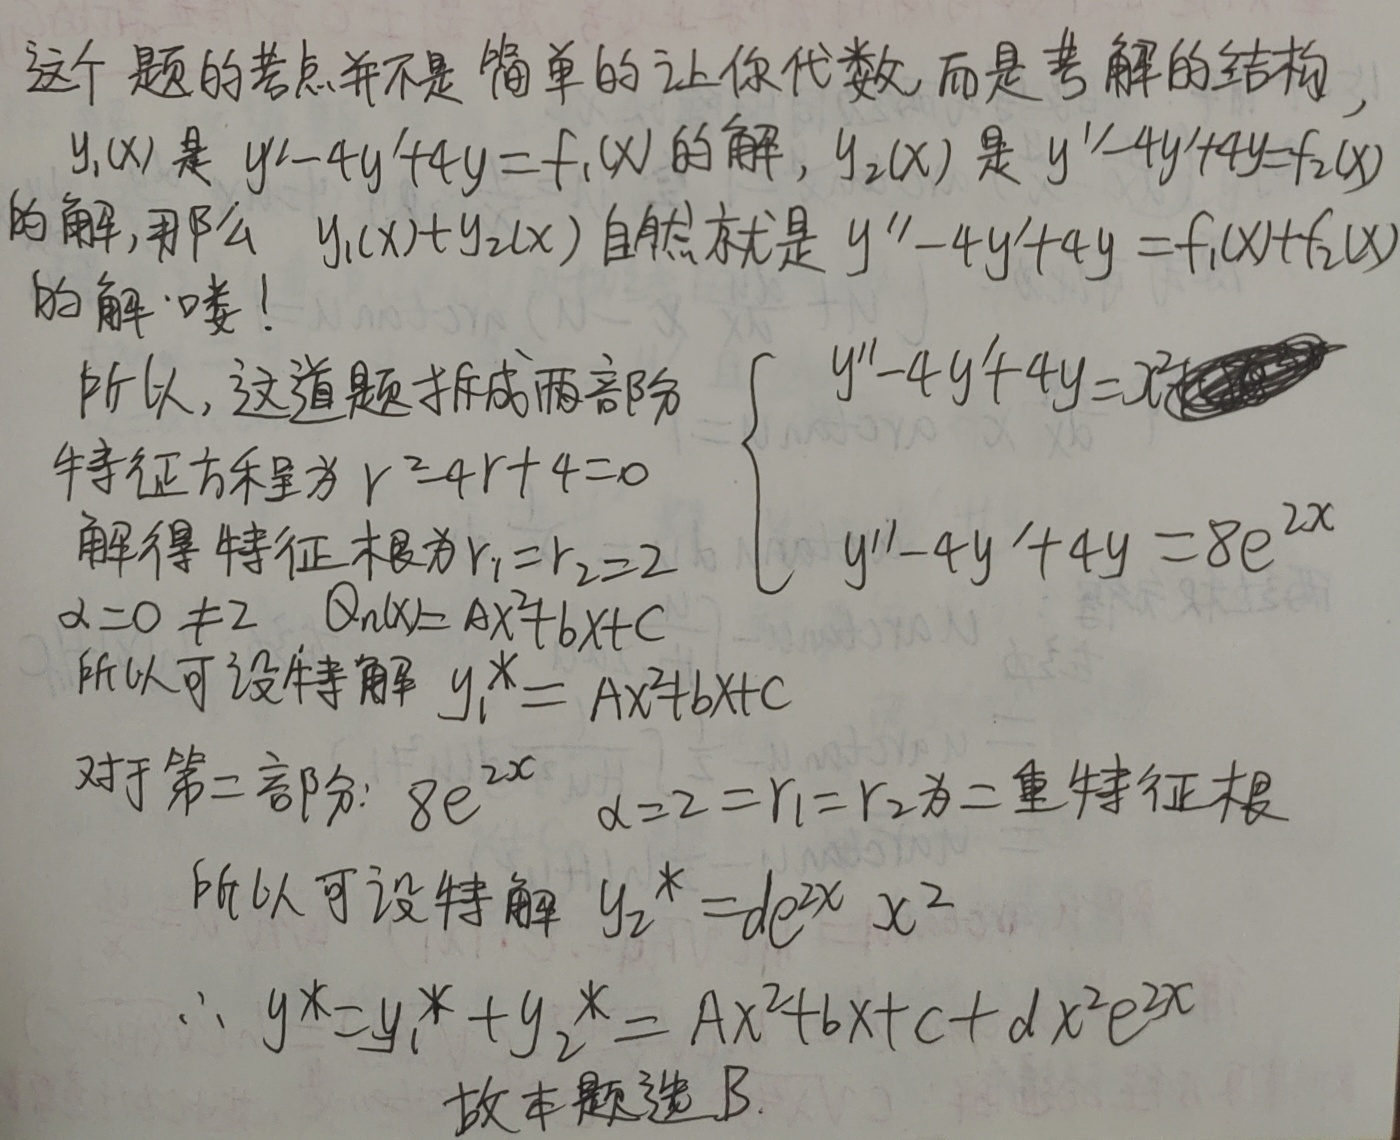 这个题的考点并不是简单的让你代数,而是考解的结构,
y₁(x)是 y''-4y'+4y=f₁(x)的解, y₂(x)是 y''-4y'+4y=f₂(x)
的解,那么 y₁(x)+y₂(x)自然就是 y''-4y'+4y=f₁(x)+f₂(x)
的解喽!
所以,这道题拆成两部分 { y''-4y'+4y=x²
特征方程为 r²-4r+4=0
解得特征根为r₁=r₂=2 y''-4y'+4y=8e^{2x}
α=0≠2 Qn(x)=Ax²+bx+C
所以可设特解 y₁*=Ax²+bx+C
对于第二部分: 8e^{2x} α=2=r₁=r₂为二重特征根
所以可设特解 y₂*=de^{2x} x²
∴ y*=y₁*+y₂*=Ax²+bx+c+dx²e^{2x}
故本题选B.